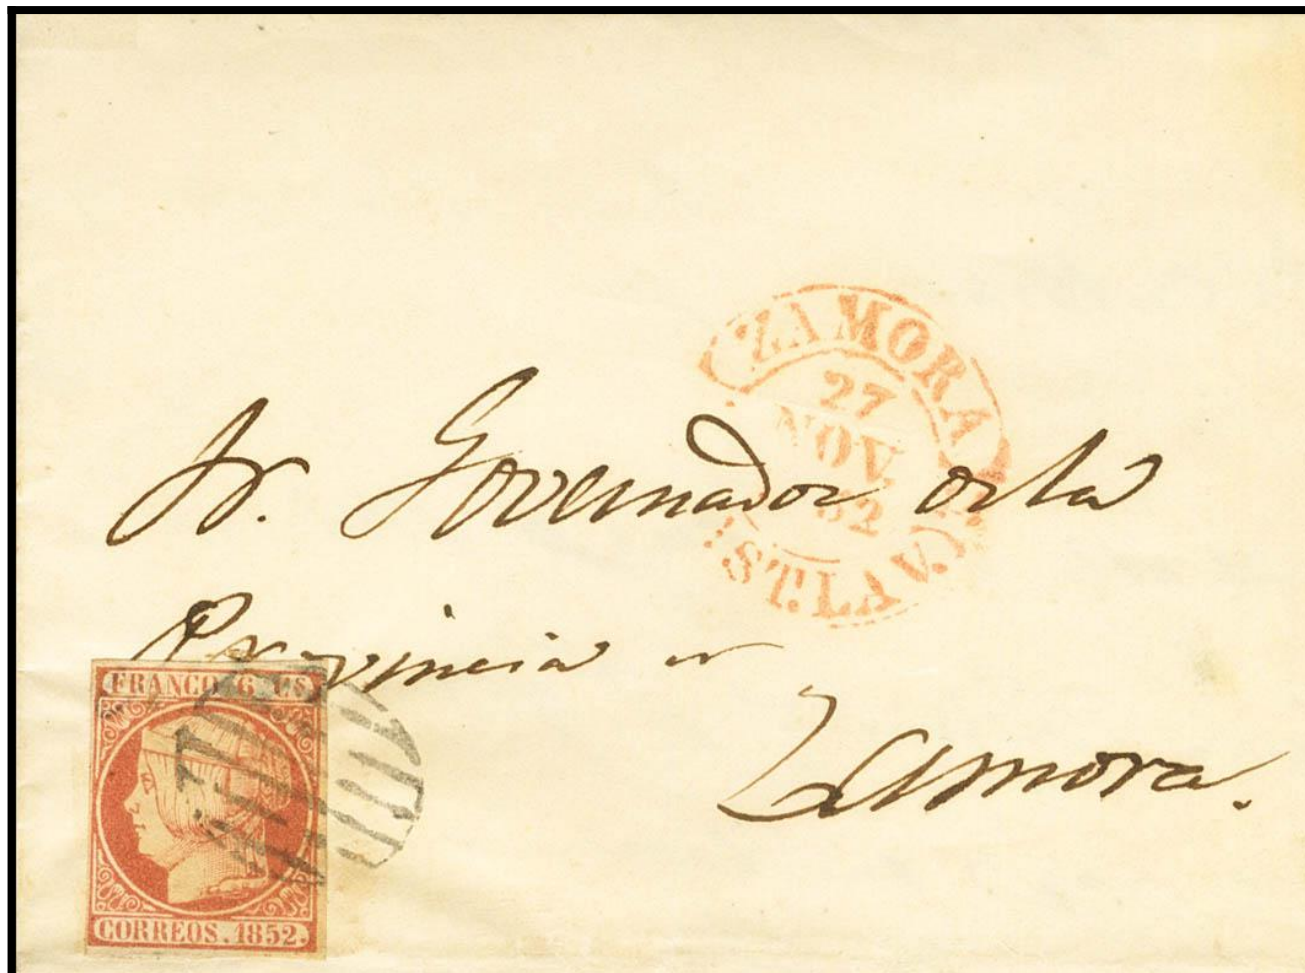 ZAMORA
27
NOV.
52
CAST.LA V.
Sr. Governador de la
Provincia de
Zamora.
FRANCO 6 CS
CORREOS. 1852.